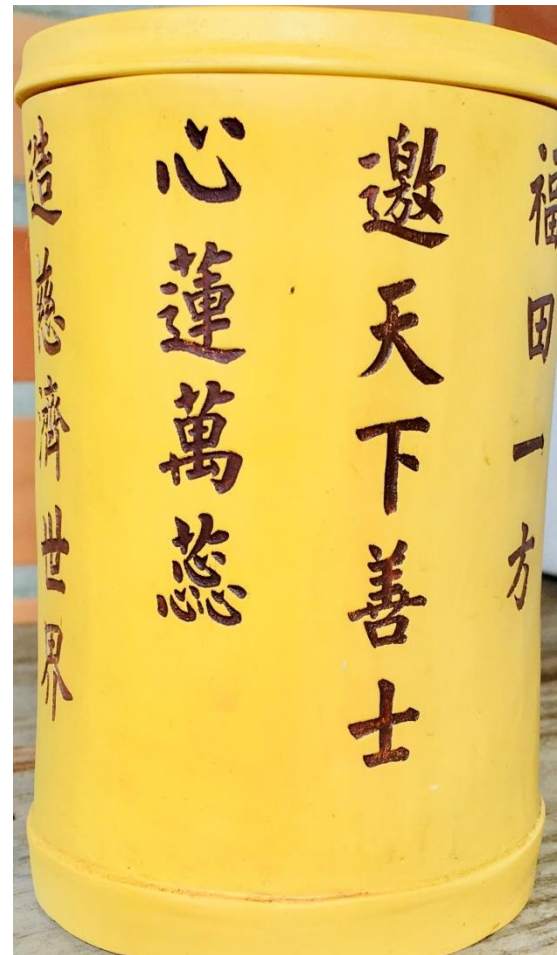 福田一方
邀天下善士
心蓮萬蕊
造慈濟世界